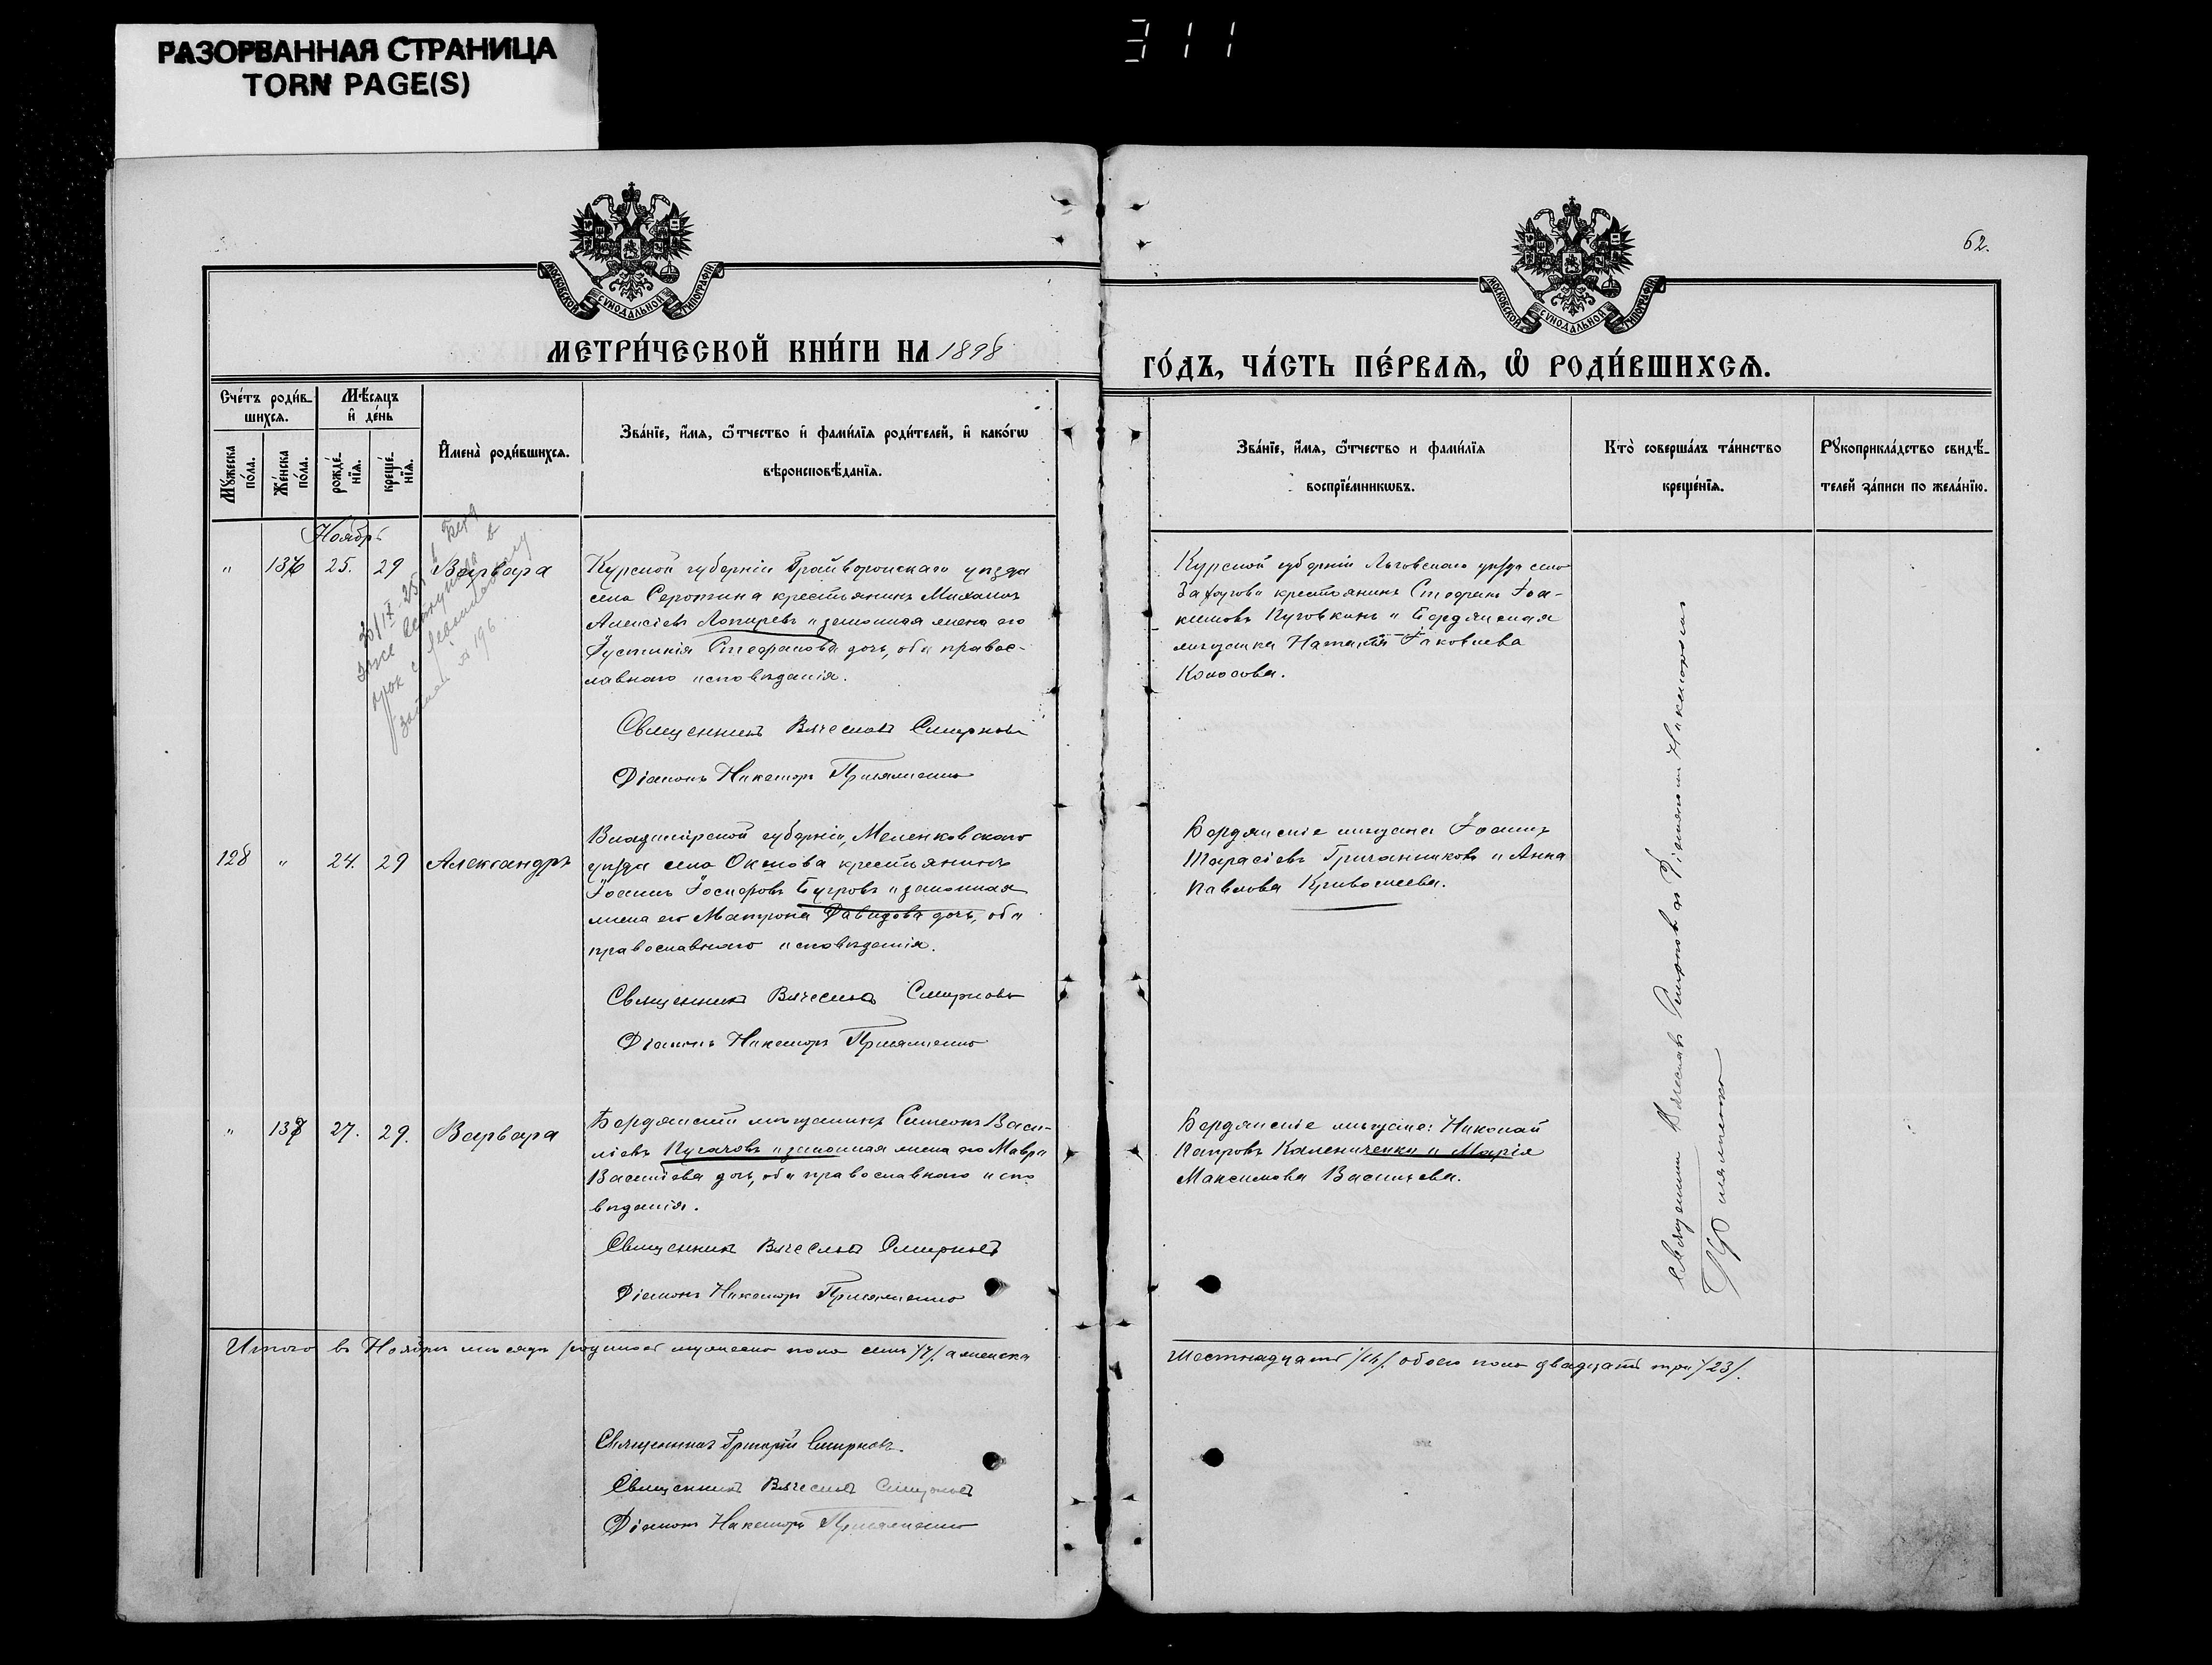 РАЗОРВАННАЯ СТРАНИЦА
TORN PAGE(S)
311
62.
МОСКОВСКОЙ СѴНОДАЛЬНОЙ ТИПОГРАФІИ
МОСКОВСКОЙ СѴНОДАЛЬНОЙ ТИПОГРАФІИ
МЕТРИ́ЧЕСКОЙ КНИ́ГИ НА 1898
ГО́ДЪ, ЧА́СТЬ ПЕ́РВАѦ, Ѡ҆ РОДИ́ВШИХСѦ.
Сче́тъ роди́в-
шихсѧ.
Мѣ́сѧцъ
и҆ де́нь
Мꙋ́жеска
по́ла.
Же́нска
по́ла.
рожде́-
нїѧ.
креще́-
нїѧ.
И҆мена̀ роди́вшихсѧ.
Зва́нїе, и҆́мѧ, ѻ҆́тчество и҆ фами́лїѧ роди́телей, и҆ како́гѡ
вѣроисповѣ́данїѧ.
Зва́нїе, и҆́мѧ, ѻ҆́тчество и фами́лїѧ
воспрїе́мникѡвъ.
Кто̀ соверша́лъ та́инство
креще́нїѧ.
Рꙋкоприкла́дство свидѣ́-
телей за́писи по жела́нїю.
Ноябрь
" 136 25. 29 Варвара
Курской губерніи Грайворонскаго уѣзда
села Серетина крестьянинъ Михаилъ
Алексіевъ Лопиревъ и законная жена его
Іустинія Стефанова дочь, оба правос-
лавнаго исповѣданія.
Священникъ Вячеславъ Смирновъ
Діаконъ Никаноръ Присяженко
Курской губерніи Льговскаго уѣзда села
крестьянинъ Стефанъ Іоа-
кимовъ Пуговкинъ и Бердянская
мѣщанка Наталія Іаковлева
Колосова.
128 " 24. 29 Александръ
Владимірской губерніи, Меленковскаго
уѣзда села Окшова крестьянинъ
Іоаннъ Іосифовъ Бугровъ и законная
жена его Матрона Давидова дочь, оба
православнаго исповѣданія.
Священникъ Вячеславъ Смирновъ
Діаконъ Никаноръ Присяженко
Бердянскіе мѣщане Іоаннъ
Тарасіевъ Гричанниковъ и Анна
Павлова Кривошеева.
" 137 27. 29. Варвара
Бердянскій мѣщанинъ Симеонъ Васи-
ліевъ Пугачовъ и законная жена его Мавра
Василіева дочь, оба православнаго испо
вѣданія.
Священникъ Вячеславъ Смирновъ
Діаконъ Никаноръ Присяженко
Бердянскіе мѣщане: Николай
Петровъ Калениченко и Марія
Максимова Васильева.
Священникъ Вячеславъ Смирновъ съ Діакономъ Никаноромъ
Присяженко
Итого въ Ноябрѣ мѣсяцѣ родилось мужеска пола семь /7/ а женска
Шестнадцать /16/ обоего пола двадцать три /23/.
Священникъ Григорій Смирновъ.
Священникъ Вячеславъ Смирновъ
Діаконъ Никаноръ Присяженко